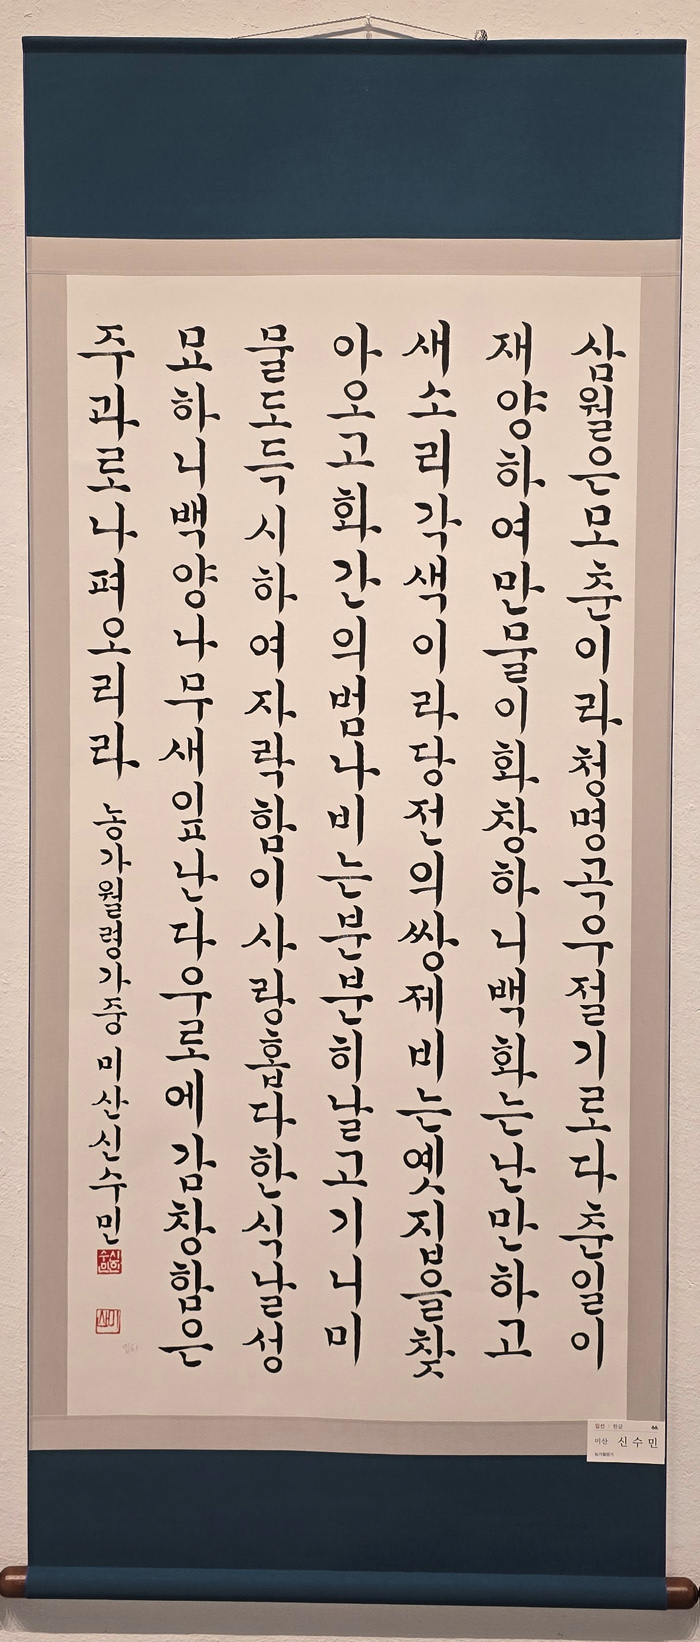 삼월은모춘이라청명곡우절기로다춘일이
재양하여만물이화창하니백화는난만하고
새소리각색이라당전의쌍제비는옛집을찾
아오고화간의범나비는분분히날고기니미
물도득시하여자락함이사랑홉다한식날성
묘하니백양나무새잎난다우로에감창함은
주과로나펴오리라 농가월령가중 미산신수민
미산
입선 : 한글 66
미산 신수민
농가월령가